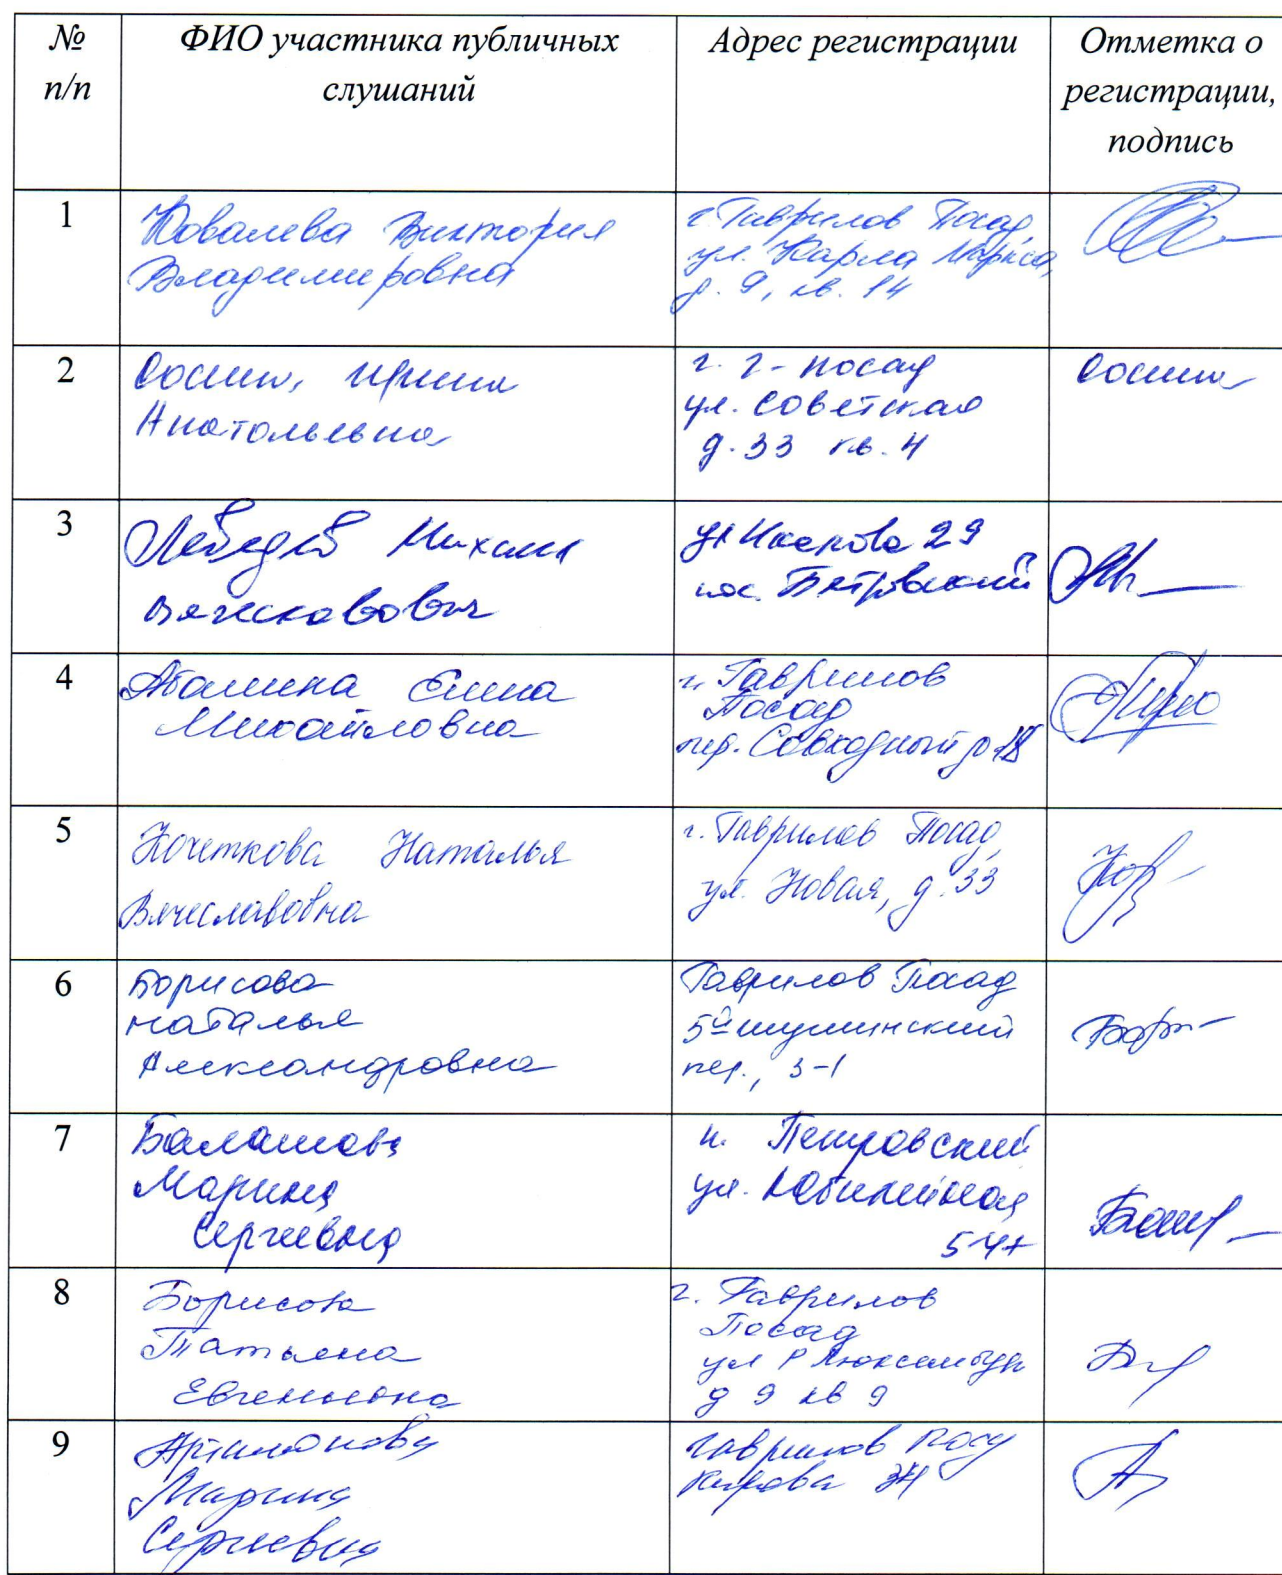 № п/п
ФИО участника публичных слушаний
Адрес регистрации
Отметка о регистрации, подпись
1
Ковалева Виктория
Владимировна
г. Гаврилов Посад,
ул. Карла Маркса,
д. 9, кв. 14
2
Ирина
Анатольевна
г. Г-Посад
ул. Советская
д. 33 кв. 4
3
Лебедев Михаил
Вячеславович
29
пос. Петровский
4
Елена
Михайловна
г. Гаврилов
Посад
пер. Совхозный д 18
5
Кочеткова Наталья
Вячеславовна
г. Гаврилов Посад,
ул. Новая, д. 33
6
Борисова
Наталья
Александровна
Гаврилов Посад
5й Шушинский
пер., 3-1
7
Балашова
Марина
Сергеевна
п. Петровский
ул. Юбилейная
8
Борисова
Татьяна
Евгеньевна
г. Гаврилов
Посад
ул Р Люксембург
д 9 кв 9
9
Артамонова
Марина
Сергеевна
Гаврилов Посад
Кирова